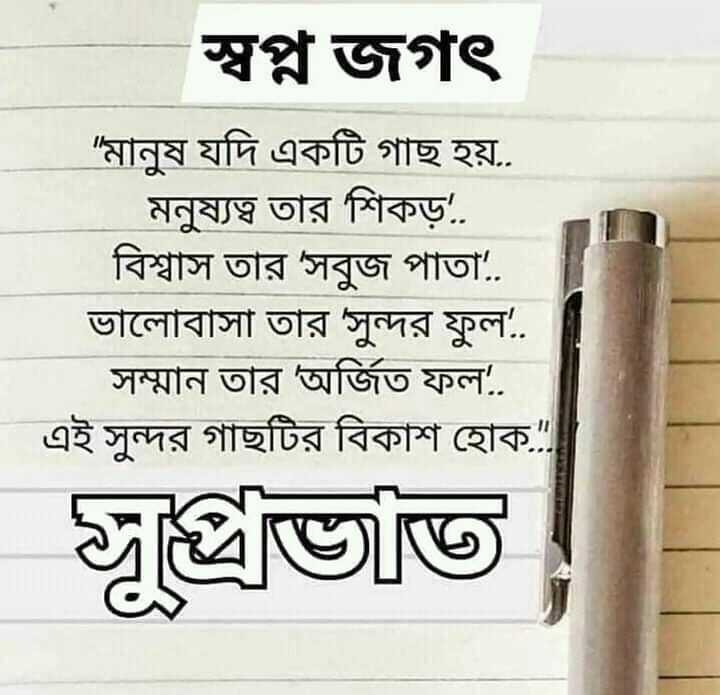 স্বপ্ন জগৎ
"মানুষ যদি একটি গাছ হয়..
মনুষ্যত্ব তার 'শিকড়'..
বিশ্বাস তার 'সবুজ পাতা'..
ভালোবাসা তার 'সুন্দর ফুল'..
সম্মান তার 'অর্জিত ফল'..
এই সুন্দর গাছটির বিকাশ হোক..."
সুপ্রভাত